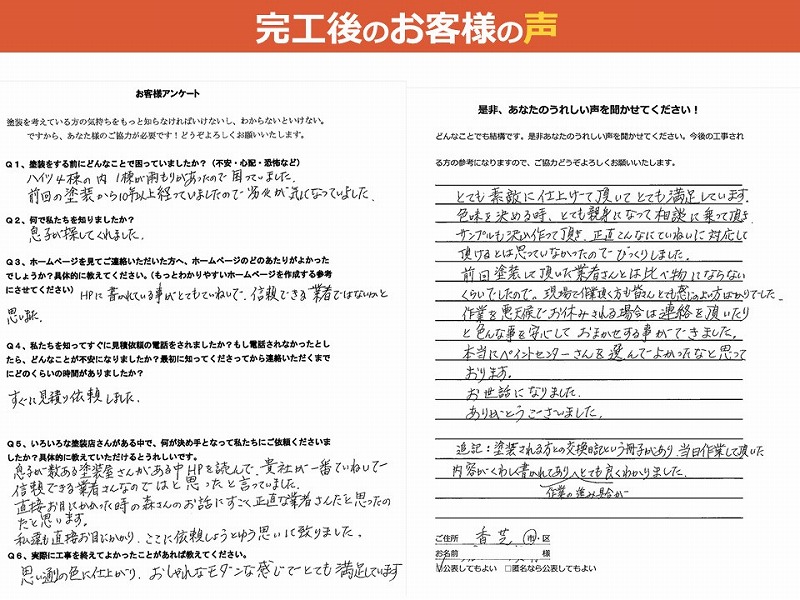 完工後のお客様の声
お客様アンケート
塗装を考えている方の気持ちをもっと知らなければいけないし、わからないといけない。
ですから、あなた様のご協力が必要です！どうぞよろしくお願いいたします。
Q１、塗装をする前にどんなことで困っていましたか？（不安・心配・恐怖など）
ハイツ4棟の内1棟が雨もりがあったので困っていました。
前回の塗装から10年以上経っていましたので劣化が気になっていました。
Q２、何で私たちを知りましたか？
息子が探してくれました。
Q３、ホームページを見てご連絡いただいた方へ、ホームページのどのあたりがよかった
でしょうか？具体的に教えてください。（もっとわかりやすいホームページを作成する参考
にさせてください）
HPに書かれている事がとてもていねいで、信頼できる業者ではないかと
思いました。
Q４、私たちを知ってすぐに見積依頼の電話をされましたか？もし電話されなかったとし
たら、どんなことが不安になりましたか？最初に知ってくださってから連絡いただくまで
にどのくらいの時間がありましたか？
すぐに見積り依頼しました。
Q５、いろいろな塗装店さんがある中で、何が決め手となって私たちにご依頼くださいま
したか？具体的に教えていただけるとうれしいです。
息子が数ある塗装屋さんがある中HPを読んで、貴社が一番ていねいで
信頼できる業者さんなのではと思ったと言っていました。
直接お目にかかった時の森さんのお話にすごく正直な業者さんだと思ったの
だと思います。
私達も直接お目にかかり、ここに依頼しようとゆう思いに致りました。
Q６、実際に工事を終えてよかったことがあれば教えてください。
思い通りの色に仕上がり、おしゃれなモダンな感じでとても満足しています
是非、あなたのうれしい声を聞かせてください！
どんなことでも結構です。是非あなたのうれしい声を聞かせてください。今後の工事され
る方の参考になりますので、ご協力どうぞよろしくお願いいたします。
とても素敵に仕上げて頂いてとても満足しています。
色味を決める時、とても親身になって相談に乗って頂き
サンプルも沢山作って頂き、正直こんなにていねいに対応して
頂けるとは思っていなかったのでびっくりしました。
前回塗装して頂いた業者さんとは比べ物にならない
くらいでしたので。現場で作業頂く方も皆さんとても感じのよい方ばかりでした。
作業を悪天候でお休みされる場合は連絡を頂いたり
と色んな事を安心しておまかせする事ができました。
本当にペイントセンターさんを選んでよかったなと思って
おります。
お世話になりました。
ありがとうございました。
追記：塗装される方との交換日記という冊子があり、当日作業して頂いた
内容がくわしく書かれてありとても良くわかりました。
作業の進み具合が
ご住所 香芝 市・区
お名前 様
公表してもよい □匿名なら公表してもよい